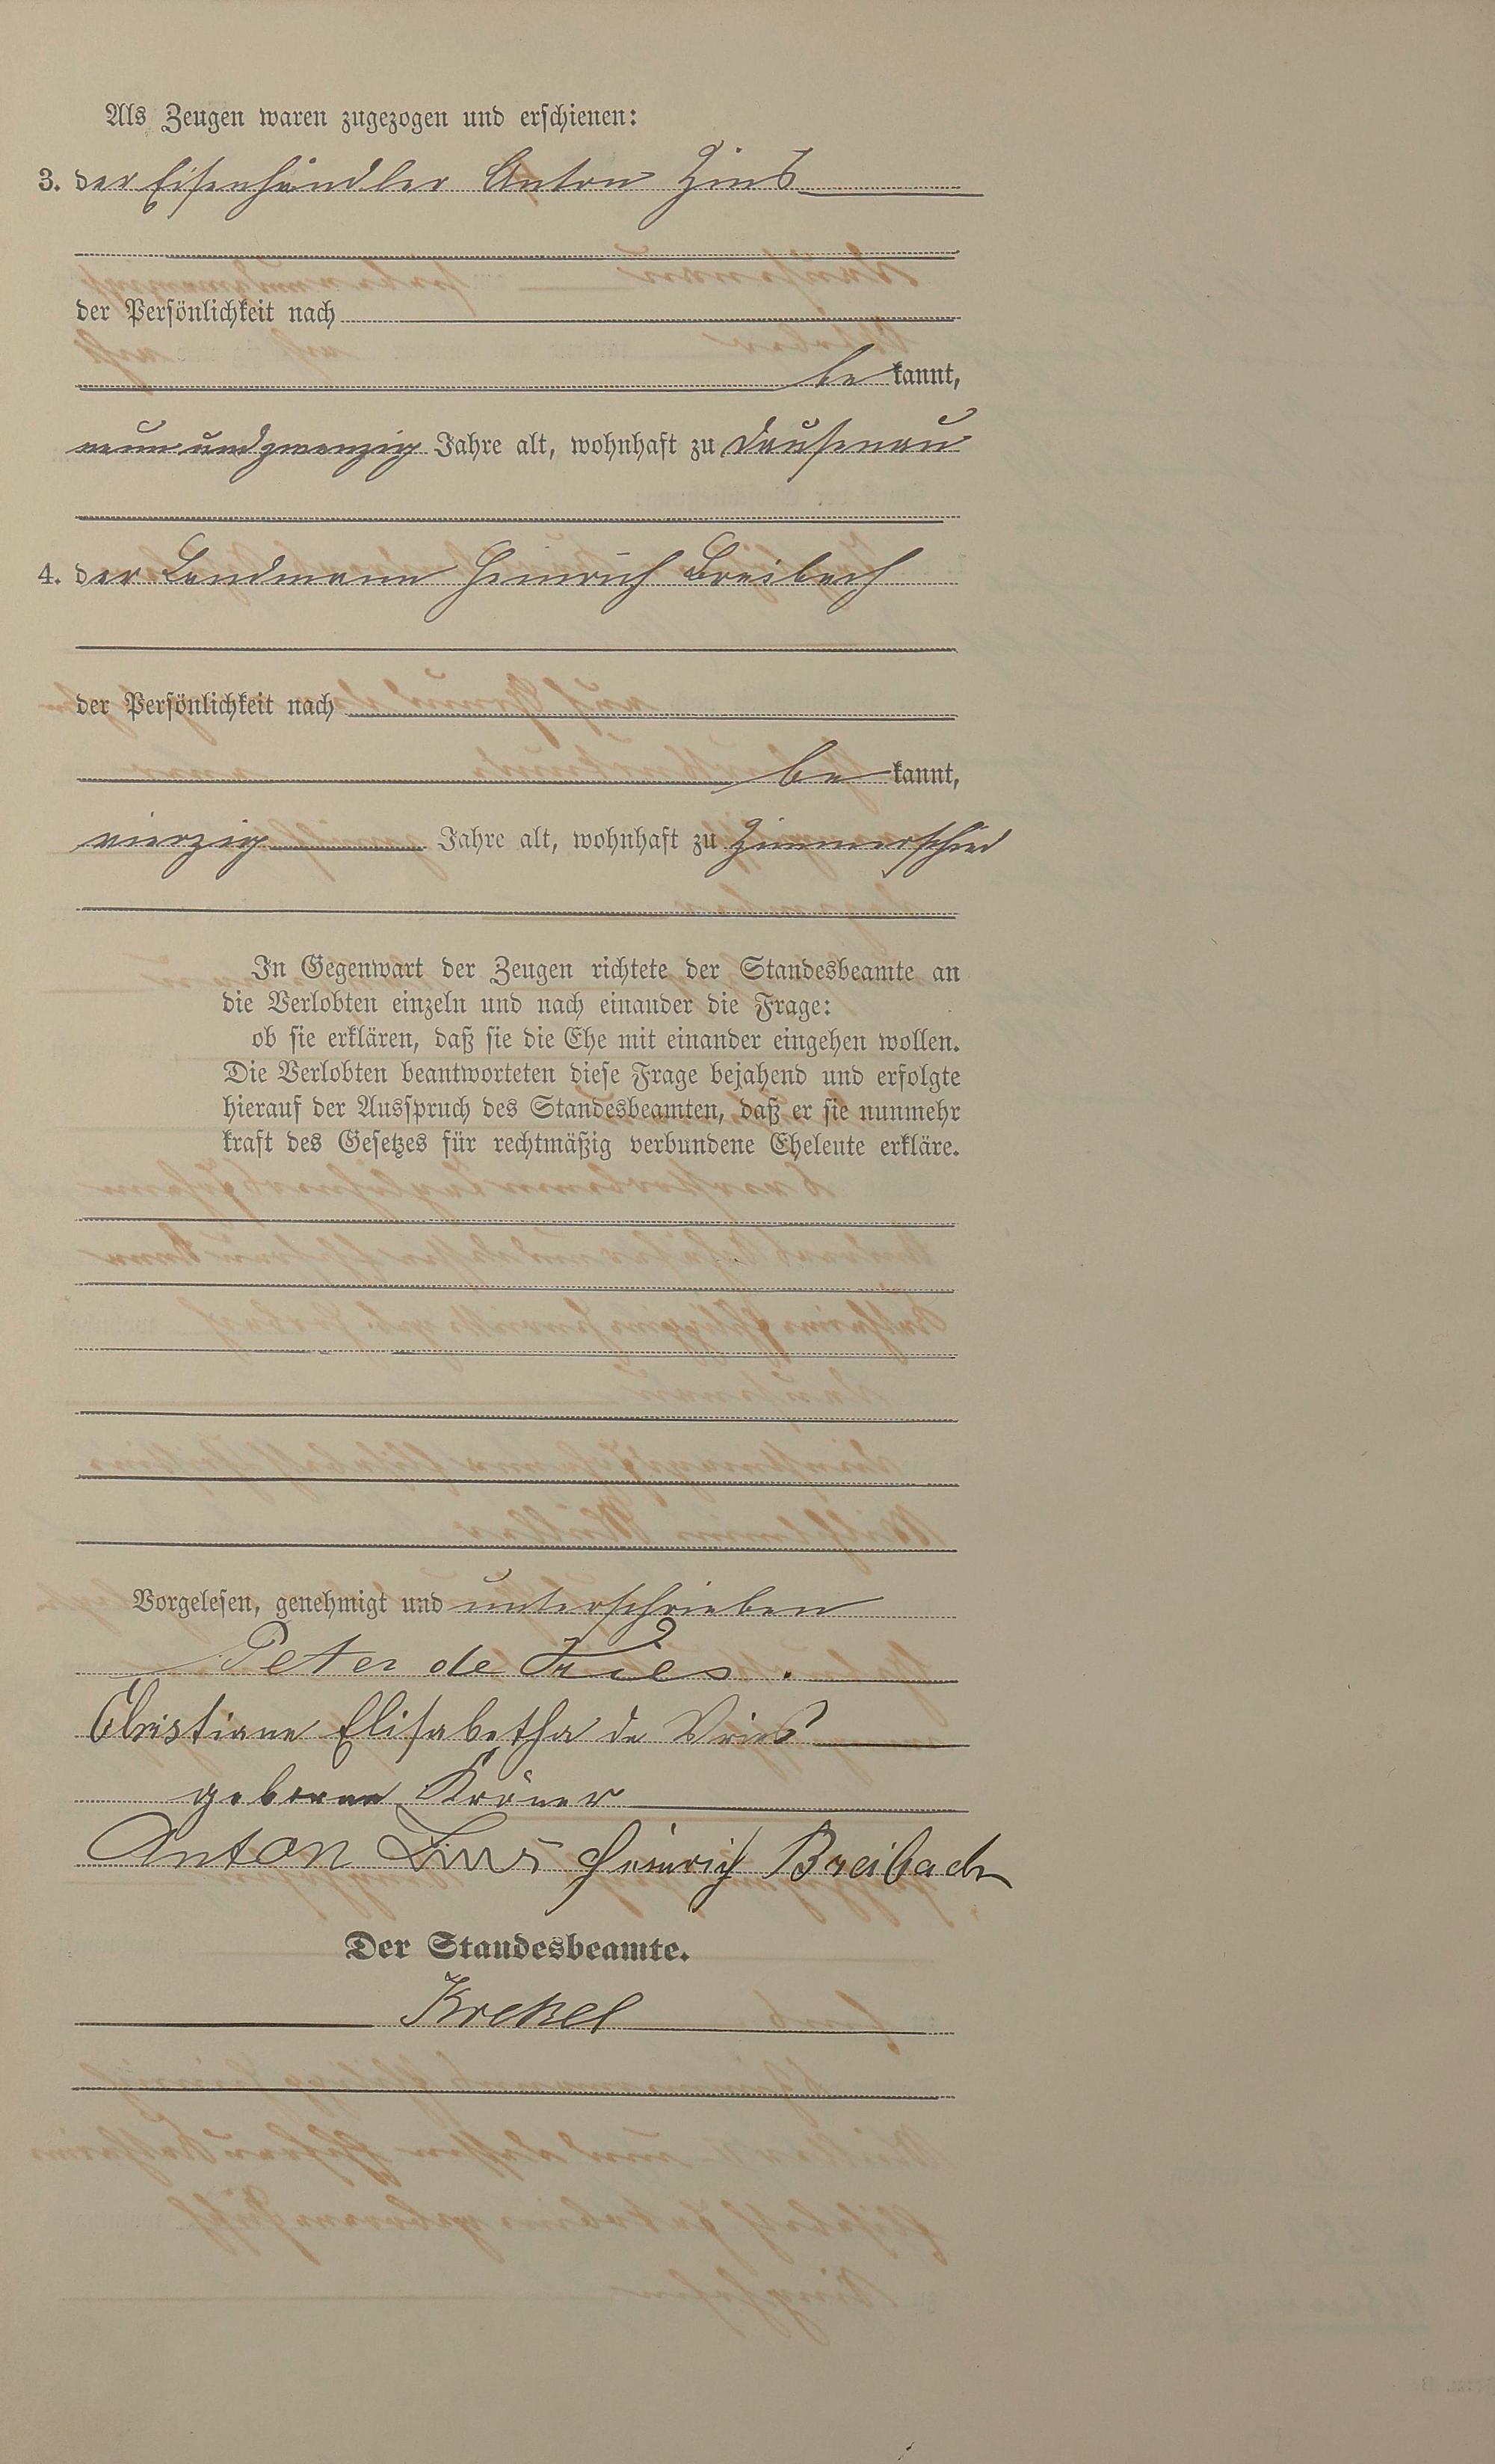 Als Zeugen waren zugezogen und erschienen:
3. der Eisenhändler Anton Zins
der Persönlichkeit nach
be kannt,
neunundzwanzig Jahre alt, wohnhaft zu Dausenau
4. der Landmann Heinrich Breibach
der Persönlichkeit nach
be kannt,
vierzig Jahre alt, wohnhaft zu Zimmerschied
In Gegenwart der Zeugen richtete der Standesbeamte an
die Verlobten einzeln und nach einander die Frage:
ob sie erklären, daß sie die Ehe mit einander eingehen wollen.
Die Verlobten beantworteten diese Frage bejahend und erfolgte
hierauf der Ausspruch des Standesbeamten, daß er sie nunmehr
kraft des Gesetzes für rechtmäßig verbundene Eheleute erkläre.
Vorgelesen, genehmigt und unterschrieben
Peter de Fries.
Christiane Elisabetha de Vries
geborene Kröner
Anton Zins Heinrich Breibach
Der Standesbeamte.
Krekel